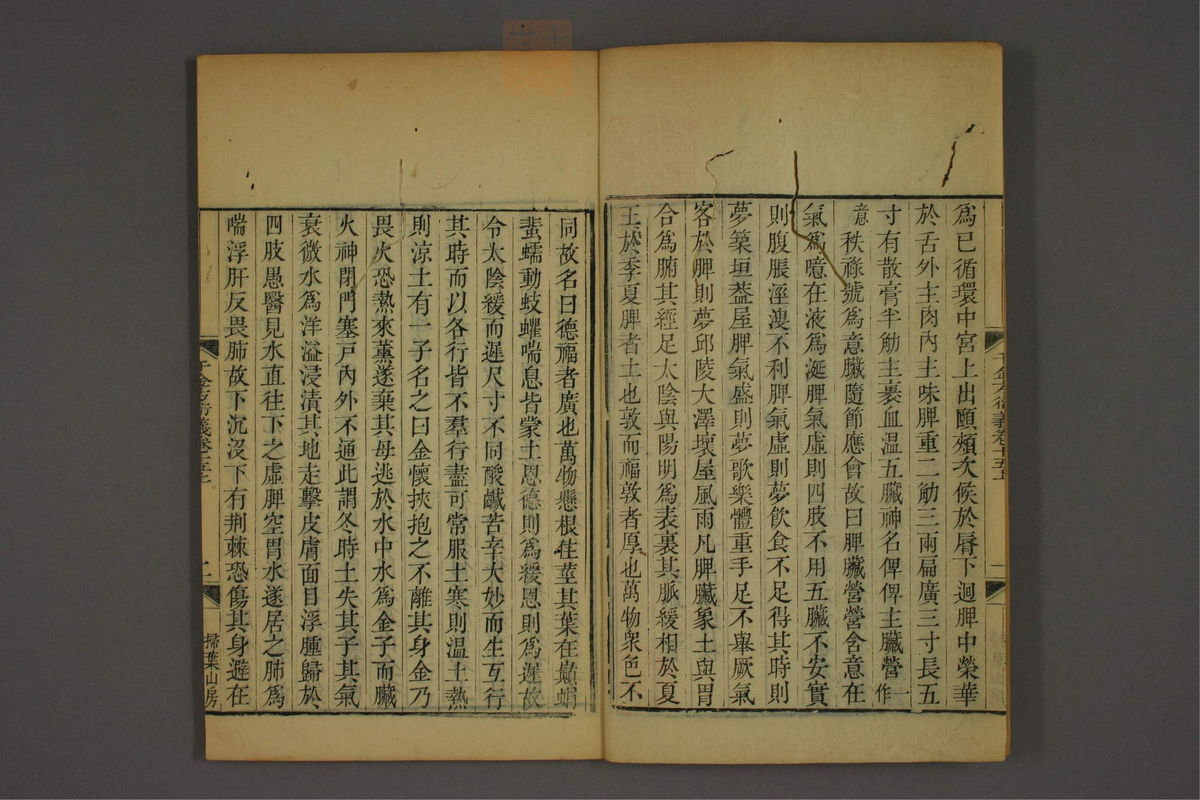 爲已循環中宮上出頤頰次候於脣下迴脾中榮華
於舌外主肉內主味脾重二觔三兩扁廣三寸長五
寸有散膏半觔主裹血温五臟神名俾俾主臟營一作
意秩祿號爲意臟隨節應會故曰脾臟營營舍意在
氣爲噫在液爲涎脾氣虛則四肢不用五臟不安實
則腹脹溼溲不利脾氣虛則夢飲食不足得其時則
夢築垣葢屋脾氣盛則夢歌樂體重手足不舉厥氣
客於脾則夢邱陵大澤壞屋風雨凡脾臟象土與胃
合爲腑其經足太陰與陽明爲表裏其脈緩相於夏
王於季夏脾者土也敦而福敦者厚也萬物衆色不
同故名曰德福者廣也萬物懸根住莖其葉在巔蜎
蜚蠕動蚑蠷喘息皆蒙土恩德則爲緩恩則爲遲故
令太陰緩而遲尺寸不同酸鹹苦辛大妙而生互行
其時而以各行皆不羣行盡可常服土寒則温土熱
則涼土有一子名之曰金懷挾抱之不離其身金乃
畏火恐熱來薰遂棄其母逃於水中水爲金子而臟
火神閉門塞戸內外不通此謂冬時土失其子其氣
衰微水爲洋溢浸漬其地走擊皮膚面目浮腫歸於
四肢愚醫見水直往下之虛脾空胃水遂居之肺爲
喘浮肝反畏肺故下沉沒下有荆棘恐傷其身避在
千金方衍義卷十五上
二
掃葉山房